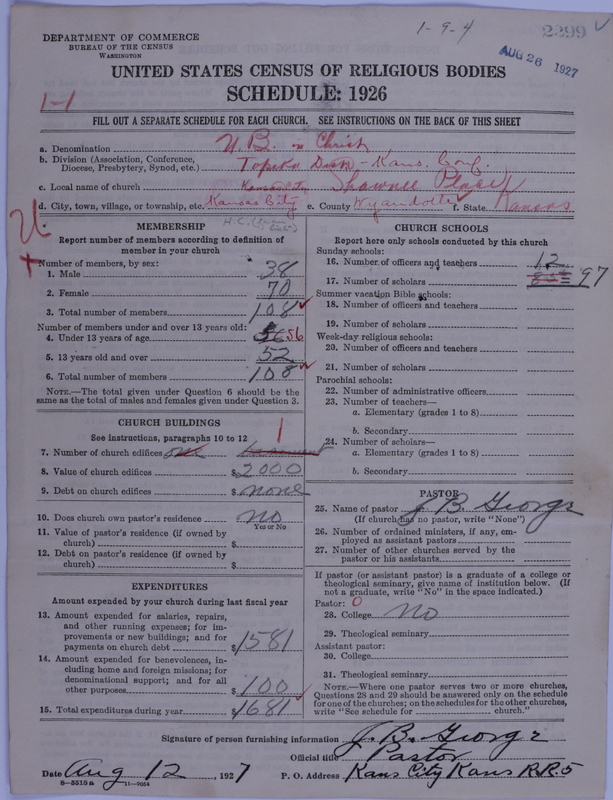 1-9-4
2399
AUG 26 1927
DEPARTMENT OF COMMERCE
BUREAU OF THE CENSUS
WASHINGTON
UNITED STATES CENSUS OF RELIGIOUS BODIES
SCHEDULE: 1926
1-1
FILL OUT A SEPARATE SCHEDULE FOR EACH CHURCH. SEE INSTRUCTIONS ON THE BACK OF THIS SHEET
a. Denomination U. B. in Christ
b. Division (Association, Conference, Diocese, Presbytery, Synod, etc.) Topeka Dist - Kans. Conf.
c. Local name of church Kansas City Shawnee Place
d. City, town, village, or township, etc. Kansas City e. County Wyandotte f. State Kansas
MEMBERSHIP
Report number of members according to definition of
member in your church
Number of members, by sex:
1. Male 38
2. Female 70
3. Total number of members 108
Number of members under and over 13 years old:
4. Under 13 years of age 56 56
5. 13 years old and over 52
6. Total number of members 108
NOTE.—The total given under Question 6 should be
the same as the total of males and females given under Question 3.
CHURCH BUILDINGS
See instructions, paragraphs 10 to 12
1
7. Number of church edifices one basement
8. Value of church edifices $2000
9. Debt on church edifices $none
10. Does church own pastor's residence? no
Yes or No
11. Value of pastor's residence (if owned by
church) $
12. Debt on pastor's residence (if owned by
church) $
EXPENDITURES
Amount expended by your church during last fiscal year
13. Amount expended for salaries, repairs,
and other running expenses; for im-
provements or new buildings; and for
payments on church debt $1581
14. Amount expended for benevolences,
including home and foreign missions; for
denominational support; and for all
other purposes $100
15. Total expenditures during year $1681
CHURCH SCHOOLS
Report here only schools conducted by this church
Sunday schools:
16. Number of officers and teachers 12
17. Number of scholars 97
Summer vacation Bible schools:
18. Number of officers and teachers
19. Number of scholars
Week-day religious schools:
20. Number of officers and teachers
21. Number of scholars
Parochial schools:
22. Number of administrative officers
23. Number of teachers—
a. Elementary (grades 1 to 8)
b. Secondary
24. Number of scholars—
a. Elementary (grades 1 to 8)
b. Secondary
PASTOR
25. Name of pastor J. B. George
(If church has no pastor, write "None")
26. Number of ordained ministers, if any, em-
ployed as assistant pastors
27. Number of other churches served by the
pastor or his assistants
If pastor (or assistant pastor) is a graduate of a college or
theological seminary, give name of institution below. (If
not a graduate, write "No" in the space indicated.)
Pastor: 0
28. College No
29. Theological seminary
Assistant pastor:
30. College
31. Theological seminary
NOTE.—Where one pastor serves two or more churches,
Questions 28 and 29 should be answered only on the schedule
for one of the churches; on the schedules for the other churches,
write "See schedule for church."
Signature of person furnishing information J. B. George
Official title Pastor
Date Aug 12, 1927 P. O. Address Kans City Kans R.R. 5
8-5515a 11-9054